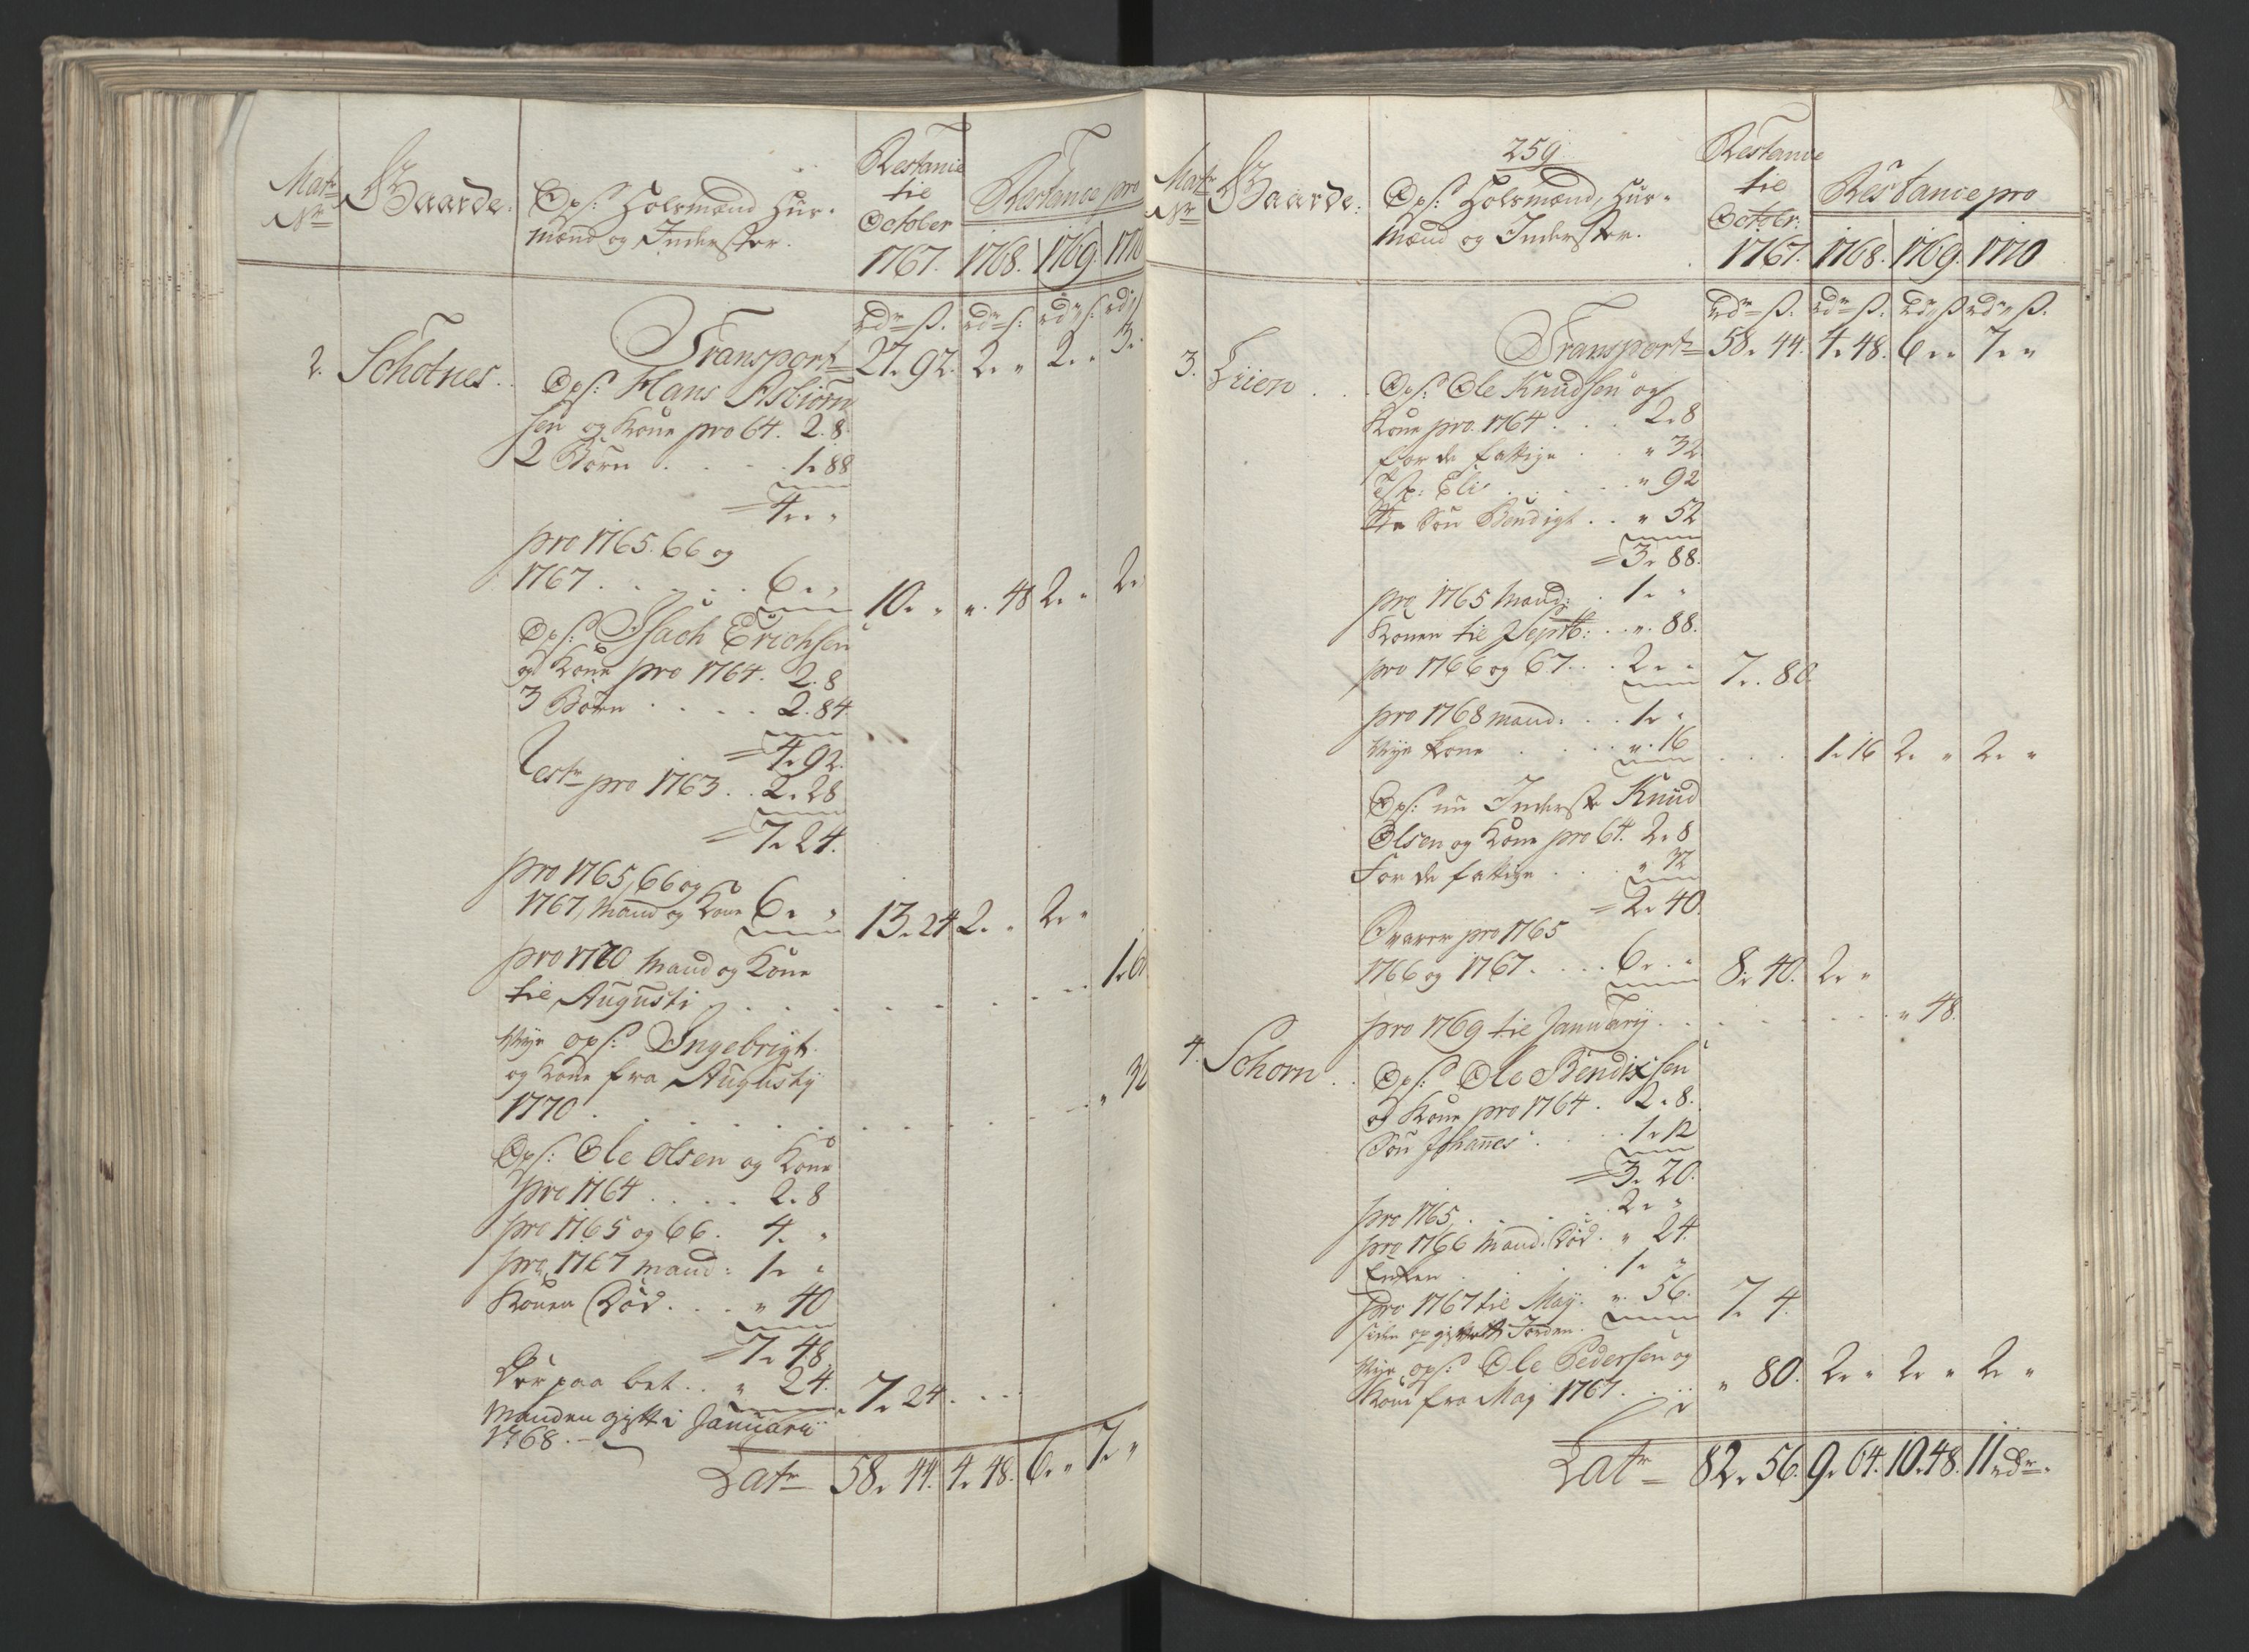 Matr Nr
Gaarde.
Ops: Holsmænd Huus-
mænd og Inderster.
Restance
til
October
1767.
Restance pro
1768. 1769. 1770
rdr ß. rdr ß. rdr ß. rd
Transport 27. 92. 2. " 2. " 3.
2. Schotnes.
Ops: Hans Asbiørn
sen og Kone pro 64. 2. 8.
2 Børn . . . 1. 88
= 4. "
pro 1765. 66 og
1767 . . . . . 6. " 10. " ". 48 2. " 2.
Ops: Isach Erichsen
og Kone pro 1764. 2. 8
3 Børn . . . . 2. 84
= 4. 92.
Restr pro 1763 . . 2. 28
= 7. 24.
pro 1765, 66 og
1767, Mand og Kone 6. " 13. 24 2. " 2. "
pro 1770 Mand og Kone
til Augusti . . . . . . . 1. 6
Nye ops: Ingebrigt
og Kone fra Augusty
1770 . . . . . . . . " 32
Ops: Ole Olsen og Kone
pro 1764 . . . . 2. 8
pro 1765 og 66. 4. "
pro 1767 mand: 1. "
Konen Død . . . " 40
= 7. 48
Der paa bet. . " 24. 7. 24. . .
Manden gift i Januarii
1768. —
Latr 58. 44. 4. 48. 6. " 7. "
259
Matr Nr
Gaarde.
Ops: Holsmænd, Huus-
mænd og Inderster.
Restance
til
October:
1767.
Restance pro
1768. 1769. 1770
rdr ß. rdr ß. rdr ß rdr ß.
Transport 58. 44. 4. 48. 6. " 7. "
3. Liien . .
Ops: Ole Knudsen og
Kone pro 1764 . . . 2. 8
for de fattige . . " 32
Tp: Eli . . . . . " 92
Søn Bendigt . . " 52
= 3. 88.
pro 1765 Mand: . 1. "
Konen til Septb: . . ". 88.
pro 1766 og 67. . . 2. " 7. 80.
pro 1768 mand: . . 1. "
Nye Kone . . . . ". 16 . . . 1. 16 2. " 2. "
Ops: nu Inderste Knud
Olsen og Kone pro 64. 2. 8
For de fattige . . . " 32
= 2. 40.
Svarer pro 1765
1766 og 1767 . . . . 6. " 8. 40. 2. "
pro 1769 til January . . . . . . " 48.
4. Schorn . .
Ops: Ole Bendixsen
og Kone pro 1764 . 2. 8.
Søn Johannes . . . . 1. 12
= 3. 20.
pro 1765, . . . . . 2. "
pro 1766 Mand: Død . " 24.
Enken . . . . . 1. "
pro 1767 til Maj. ". 56. 7. 4.
siden opgivet Jorden.
Nye ops: Ole Pedersen og
Kone fra Maj 1767 . . . " 80. 2. " 2. " 2. "
Latr 82. 56. 9. 64. 10. 48. 11 rdr.